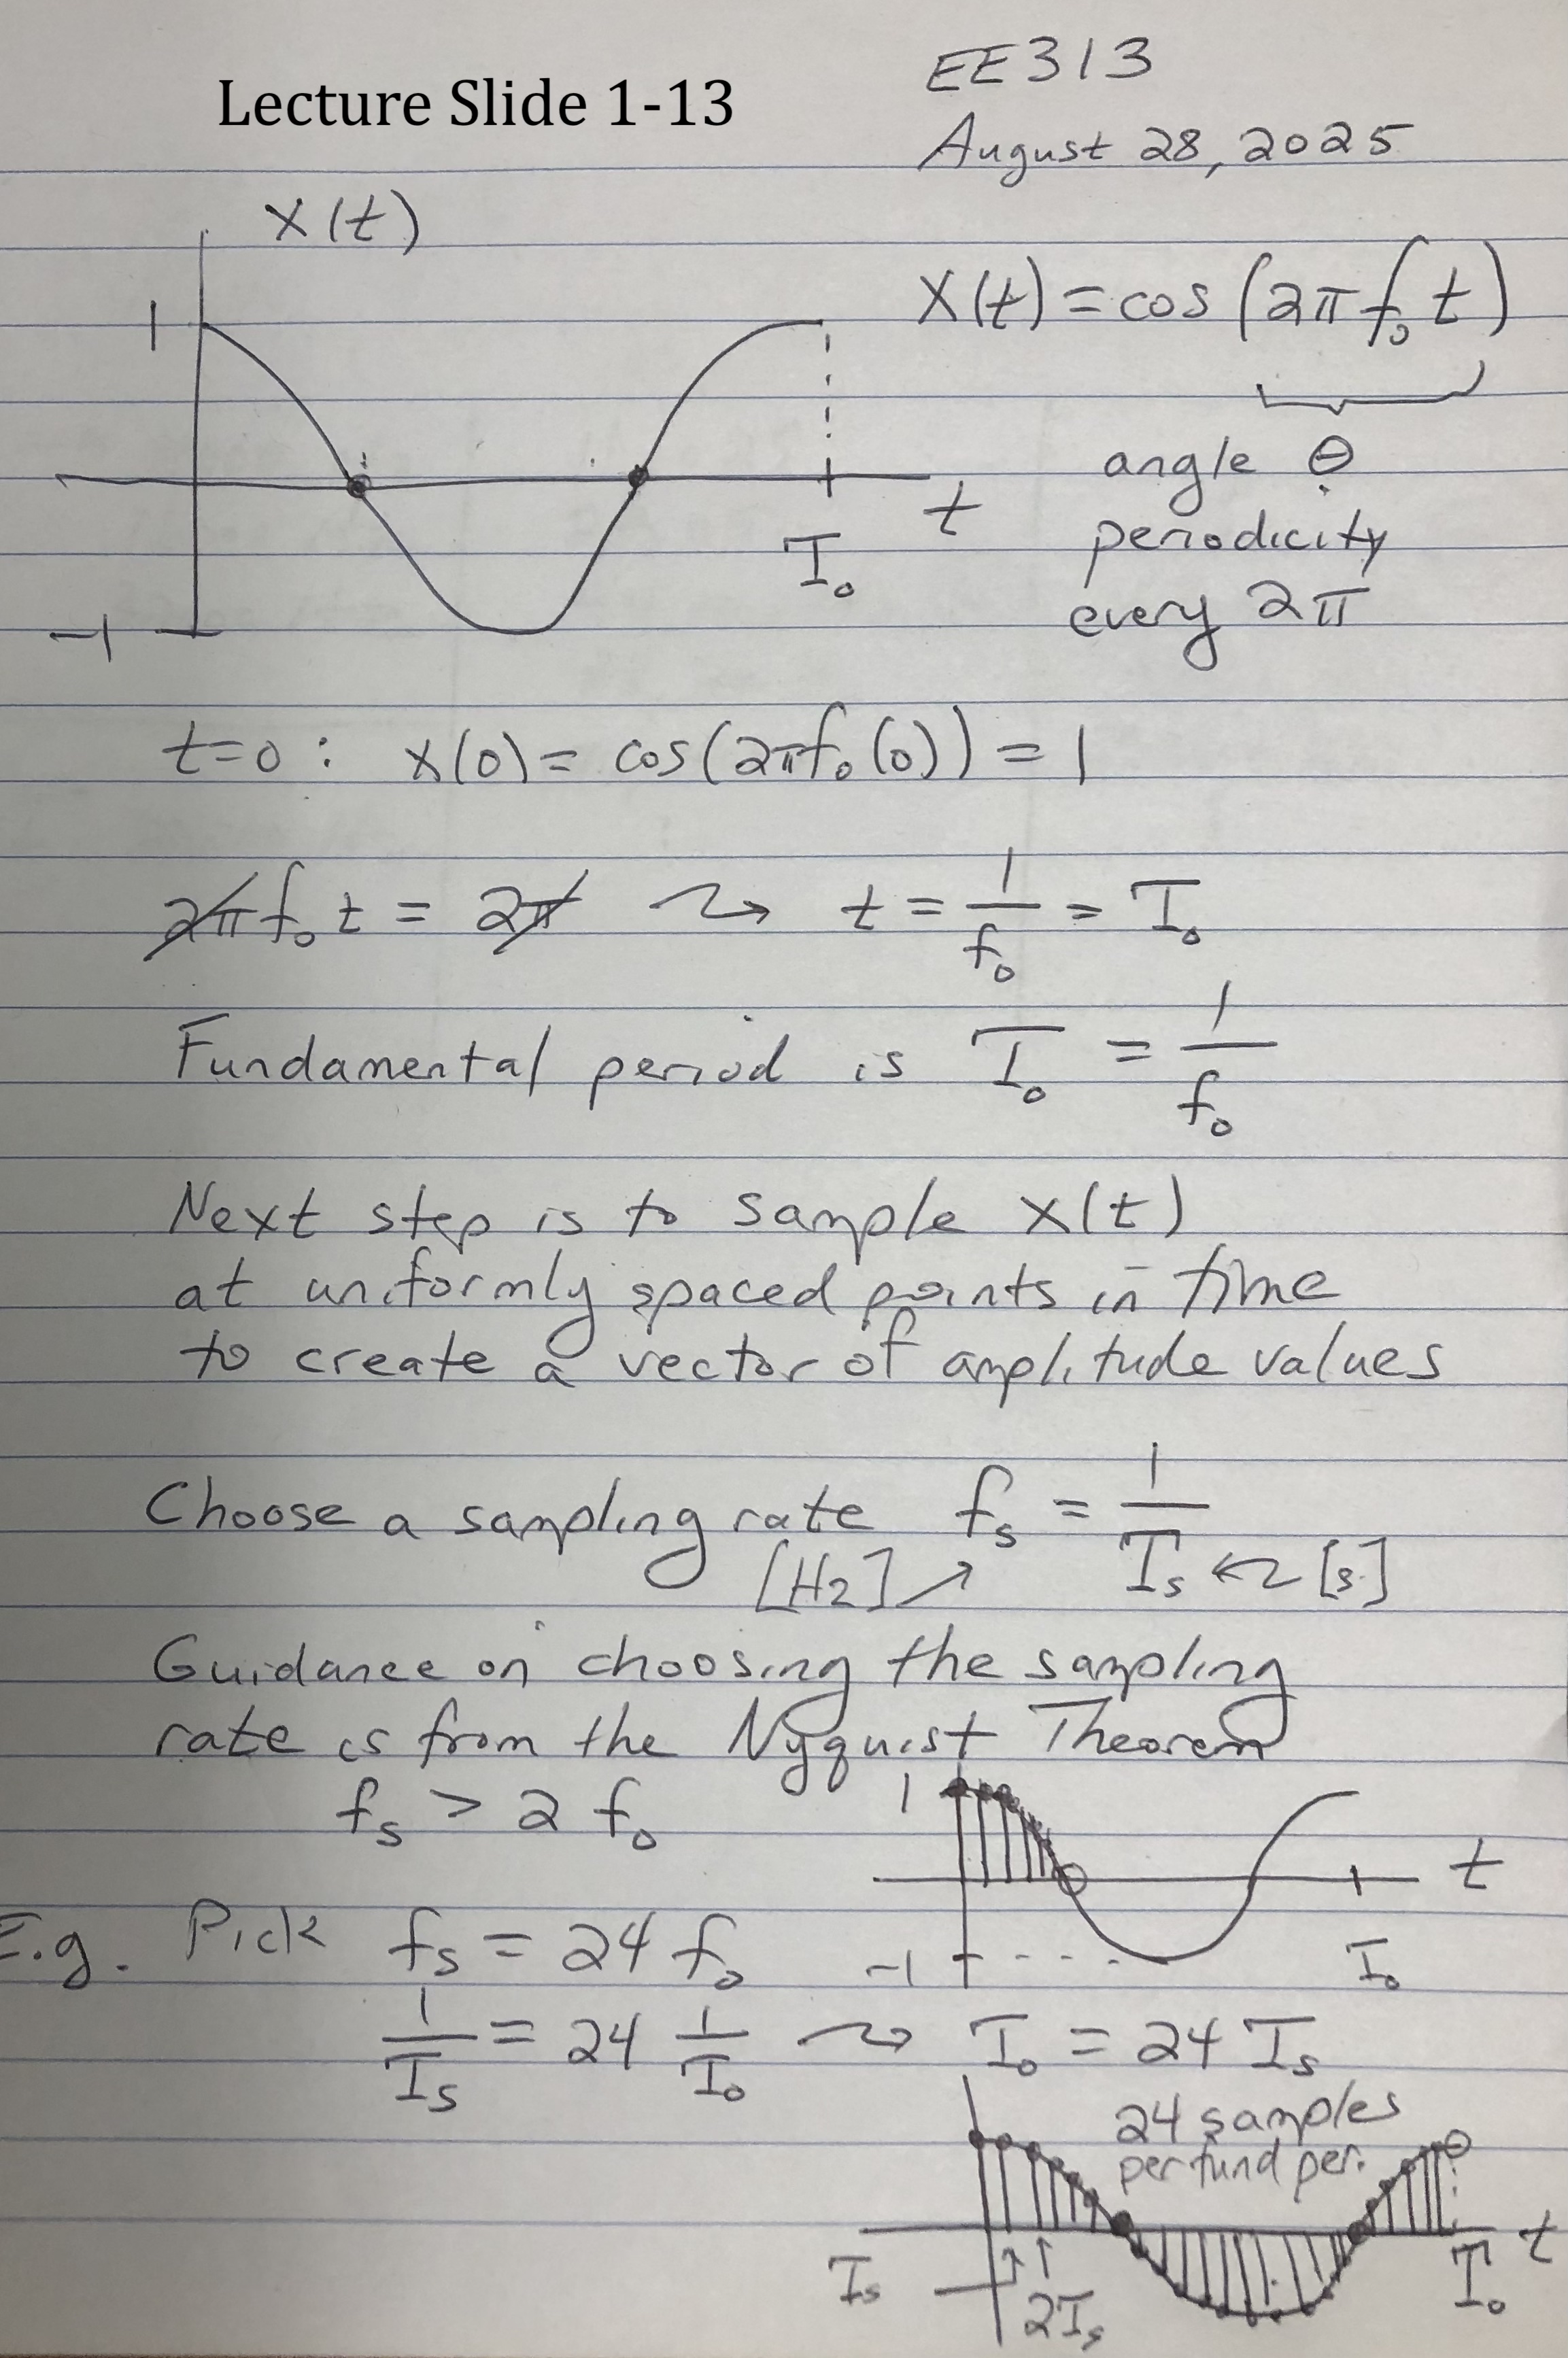 Lecture Slide 1-13
EE313
August 28, 2025
x(t)
1
-1
t
T₀
x(t) = cos(2πf₀t)
angle θ
periodicity
every 2π
t=0: x(0) = cos(2πf₀(0)) = 1
2πf₀t = 2π ↝ t = 1/f₀ = T₀
Fundamental period is T₀ = 1/f₀
Next step is to sample x(t)
at uniformly spaced points in time
to create a vector of amplitude values
Choose a sampling rate fₛ = 1/Tₛ
[Hz] ↗ ↜ [s]
Guidance on choosing the sampling
rate is from the Nyquist Theorem
fₛ > 2 f₀
1
t
-1
T₀
E.g. Pick fₛ = 24 f₀
1/Tₛ = 24 1/T₀ ↝ T₀ = 24 Tₛ
24 samples
per fund per.
t
Tₛ
2Tₛ
T₀